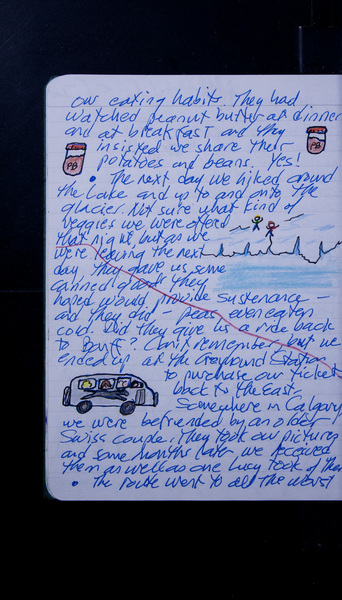 our eating habits. They had
watched peanut butter at dinner
and at breakfast and they
insisted we share their
potatoes and beans. Yes!
PB
PB
• The next day we hiked around
the Lake and up to and onto the
glacier. Not sure what kind of
veggies we were offered
that night, but as we
were leaving the next
day, they gave us some
canned goods they
hoped would provide sustenance —
and they did — peas even eaten
cold. Did they give us a ride back
to Banff? Can't remember, but we
ended up at the Greyhound Station
to purchase our ticket
back to the East.
Somewhere in Calgary
we were befriended by an older
Swiss couple. They took our pictures
and some months later, we received
them as well as one Lucy took of them
• The route went to all the worst